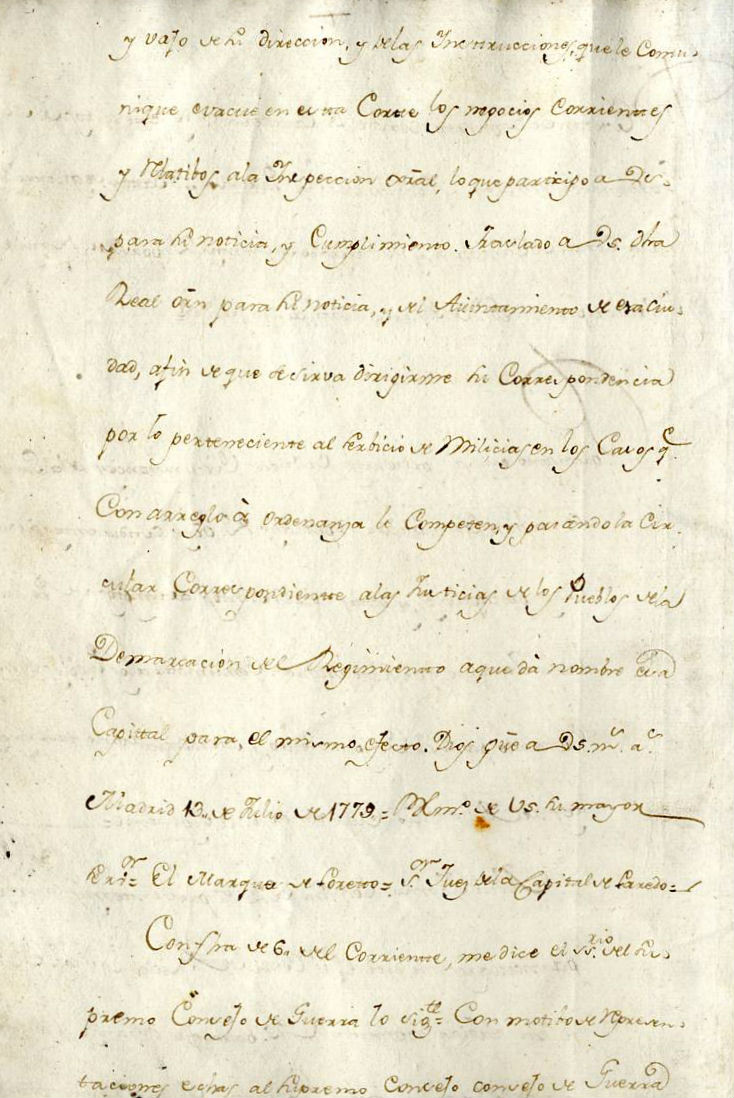 y vajo de su direccion, y de las Instrucciones, que le Comu-
nique, evacue en esta Corte los negocios Corrientes
y Rlatibos, a la Inspeccion Gral, lo que participo a Vs.
para su noticia, y Cumplimiento. Traslado a Vs. dha
Real orn para su noticia, y del Aiuntamiento de esa Ciu-
dad, afin de que se sirva dirigirme su Correspondencia
por lo perteneciente al serbicio de Milicias, en los Casos q.e
Con arreglo à ordenanza le Competen, y pasandola Cir-
cular Correspondiente a las Justicias de los Pueblos de la
Demarcación del Regimiento a que dà nombre esa
Capittal para, el mismo, efecto. Dios gûe a Vs. m.s a.s
Madrid 13,, de Julio de 1779,= Blm.o de Vs. su mayor
serv.or= El Marques de Loretto= S.or Juez de la Capital de Laredo=
Con fha de 6,, del Corriente, me dice el ss.rio del su-
premo Consejo de Guerra lo sig.te= Con motibo de represen-
taciones echas al supremo Consejo consejo de Guerra